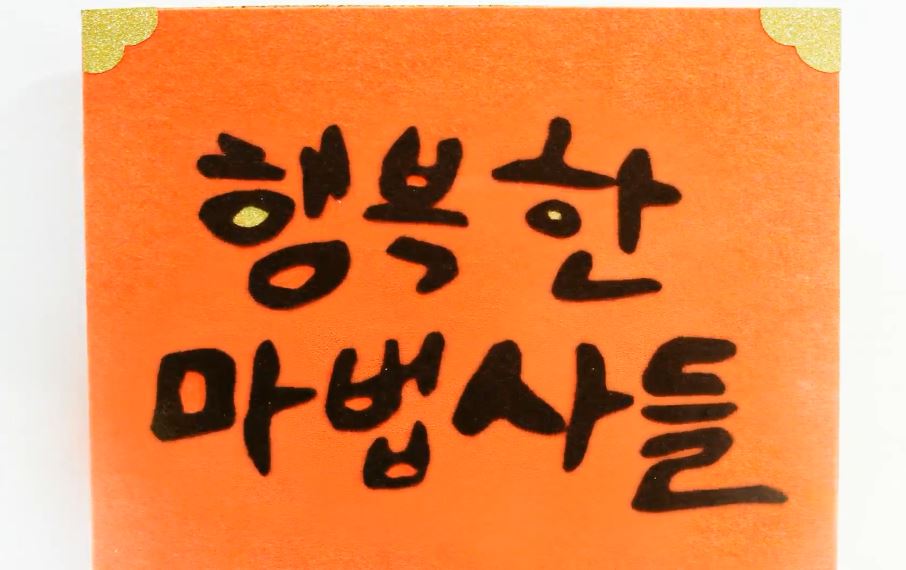 행복한
마법사들